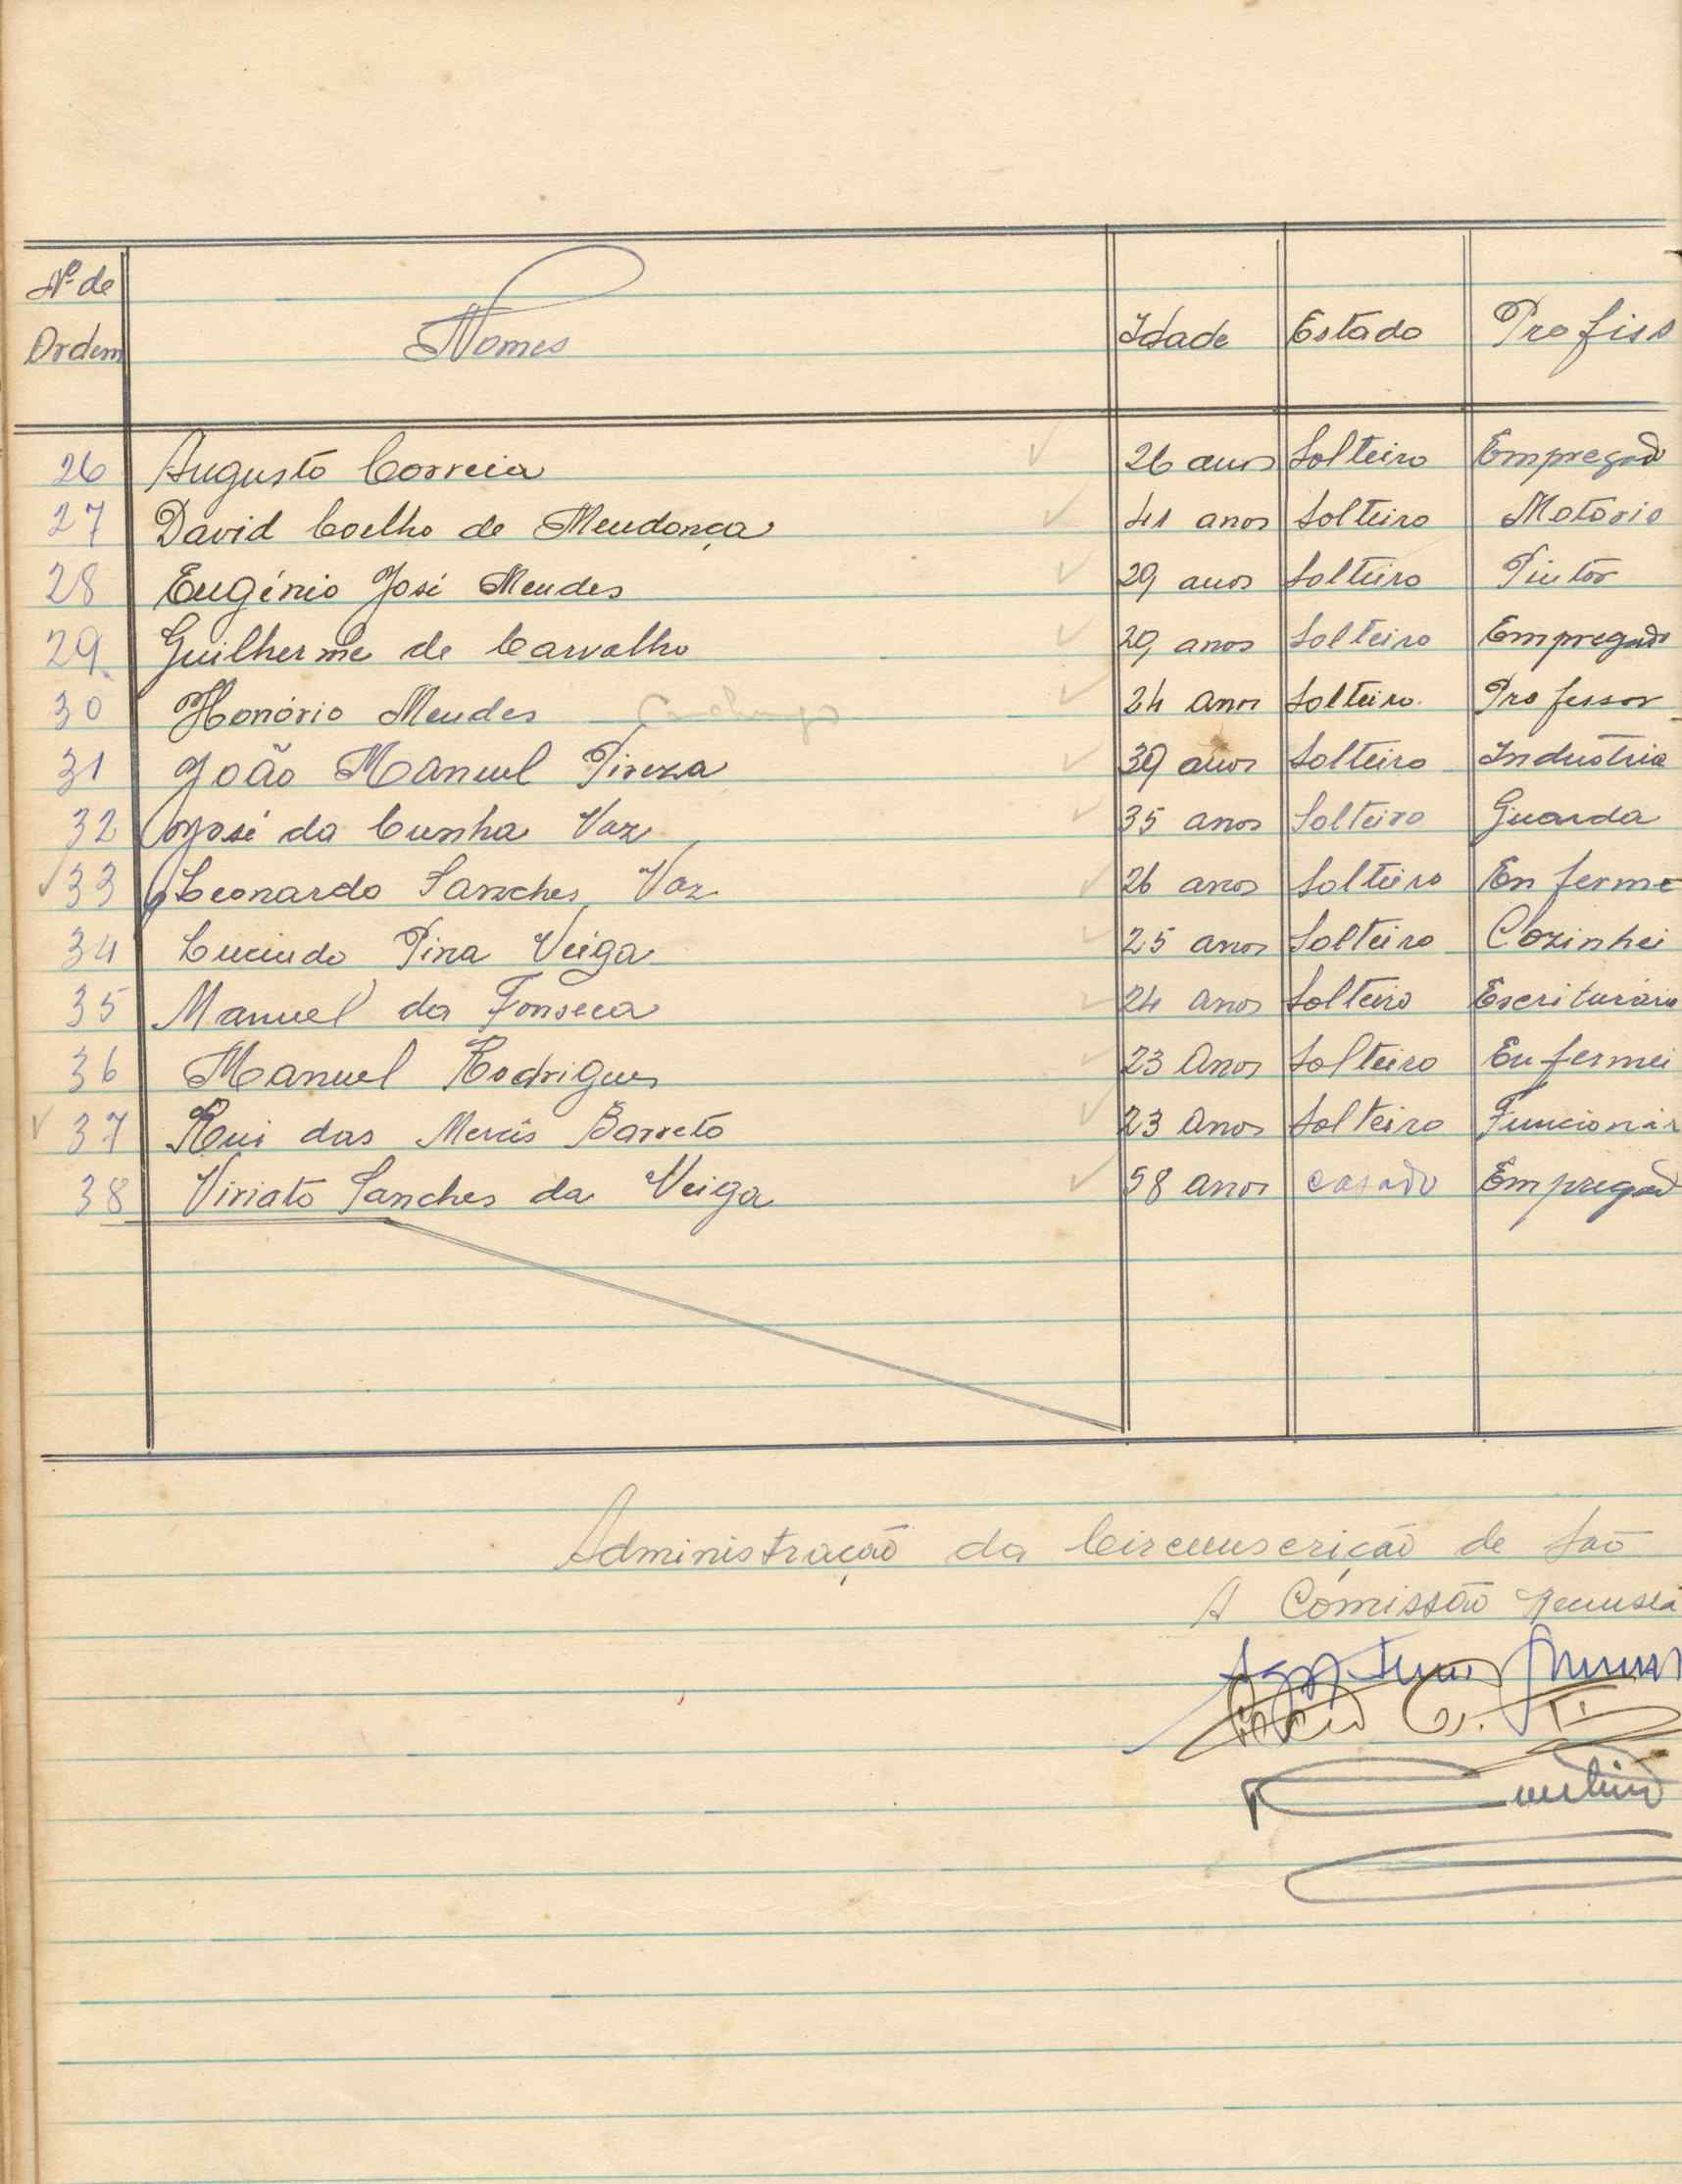 Nº de
Ordem Nomes Idade Estado Profiss
26 Augusto Correia 26 anos Solteiro Empregado
27 David Coelho de Mendonça 41 anos Solteiro Motoris
28 Eugénio José Mendes 29 anos Solteiro Pintor
29 Guilherme de Carvalho 29 anos Solteiro Empregado
30 Honório Mendes 24 anos Solteiro Professor
31 João Manuel Pireza 39 anos Solteiro Industria
32 José da Cunha Vaz 35 anos Solteiro Guarda
33 Leonardo Sanches Vaz 26 anos Solteiro Enferme
34 Lucindo Pina Veiga 25 anos Solteiro Cozinhei
35 Manuel da Fonseca 24 anos Solteiro Escriturário
36 Manuel Rodrigues 23 Anos Solteiro Enfermei
37 Rui das Mercês Barreto 23 Anos Solteiro Funcionár
38 Viriato Sanches da Veiga 58 anos casado Empregad
Administração da Circunscrição de São
A Comissão